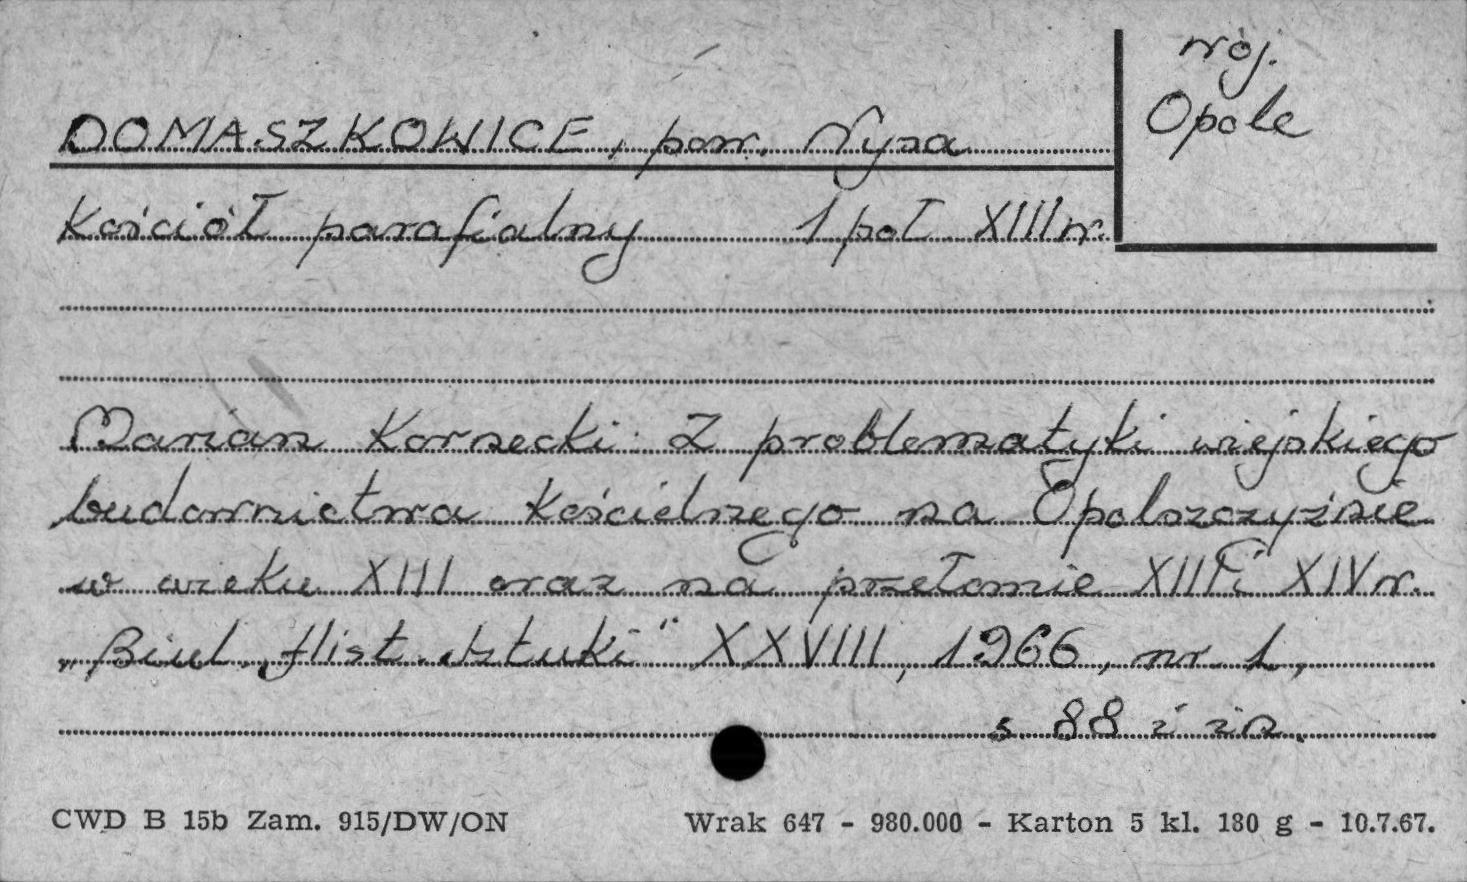 woj.
Opole
DOMASZKOWICE, pow. Nysa
Kościół parafialny 1 poł XIII w.
Marian Kornecki: Z problematyki wiejskiego
budownictwa kościelnego na Opolszczyźnie
w wieku XIII oraz na przełomie XIII i XIV w.
„Biul. Hist. Sztuki" XXVIII, 1966, nr 1,
s. 88 i in.
CWD B 15b Zam. 915/DW/ON Wrak 647 - 980.000 - Karton 5 kl. 180 g - 10.7.67.